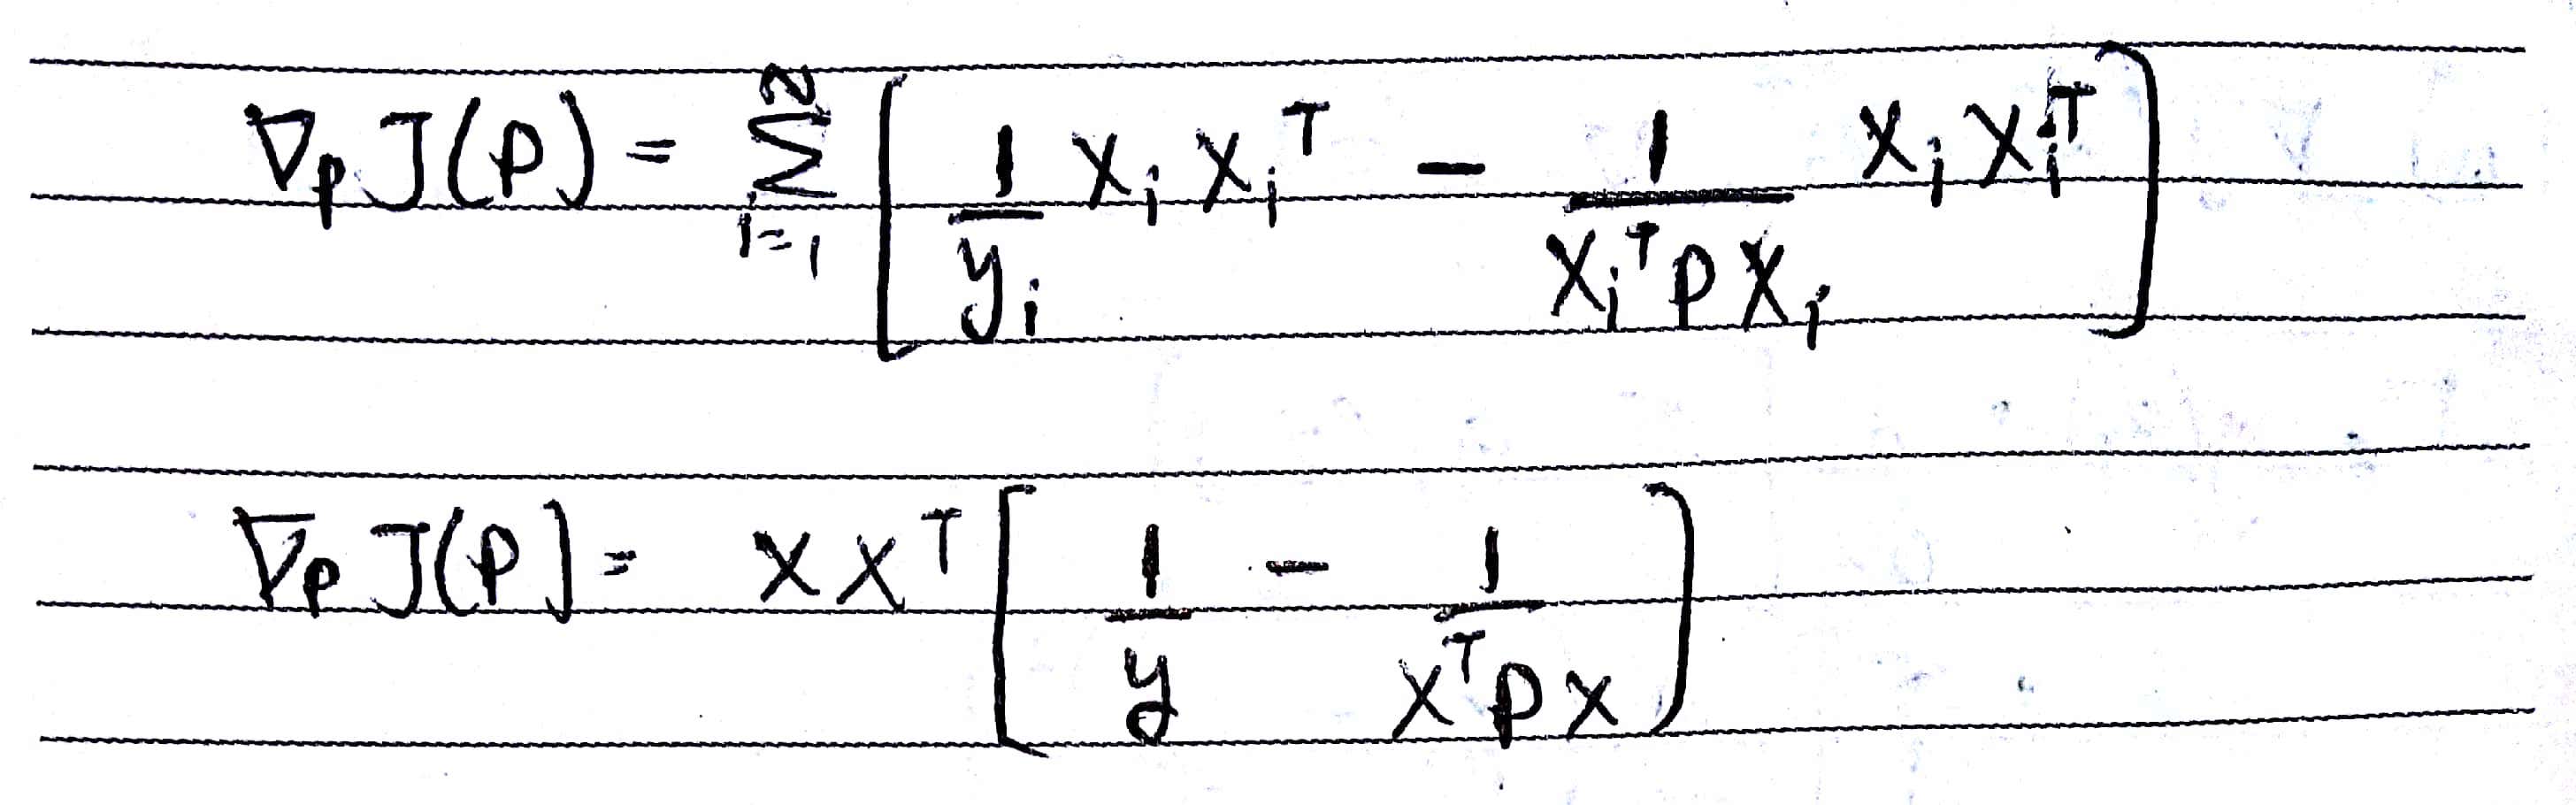 ∇_P J(P) = Σ_{i=1}^{N} [ 1/y_i x_i x_i^T − 1/(x_i^T P x_i) x_i x_i^T ]
∇_P J(P) = x x^T [ 1/y − 1/(x^T P x) ]